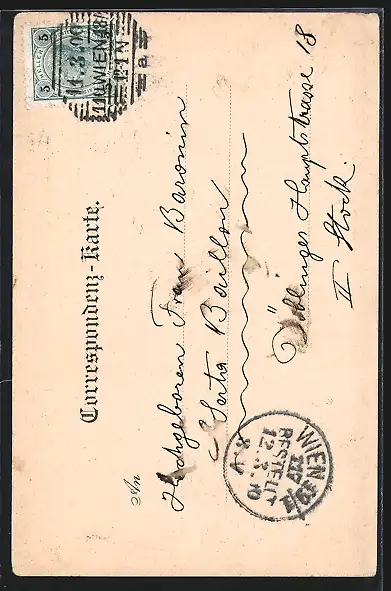 Correspondenz-Karte.
An
Hochgeboren Frau Baronin
Baillou
Döblinger Hauptstrasse 18
II Stock.
5 HELLER 5
WIEN
11.3.00
WIEN
BESTELLT
12.3.00
8.V